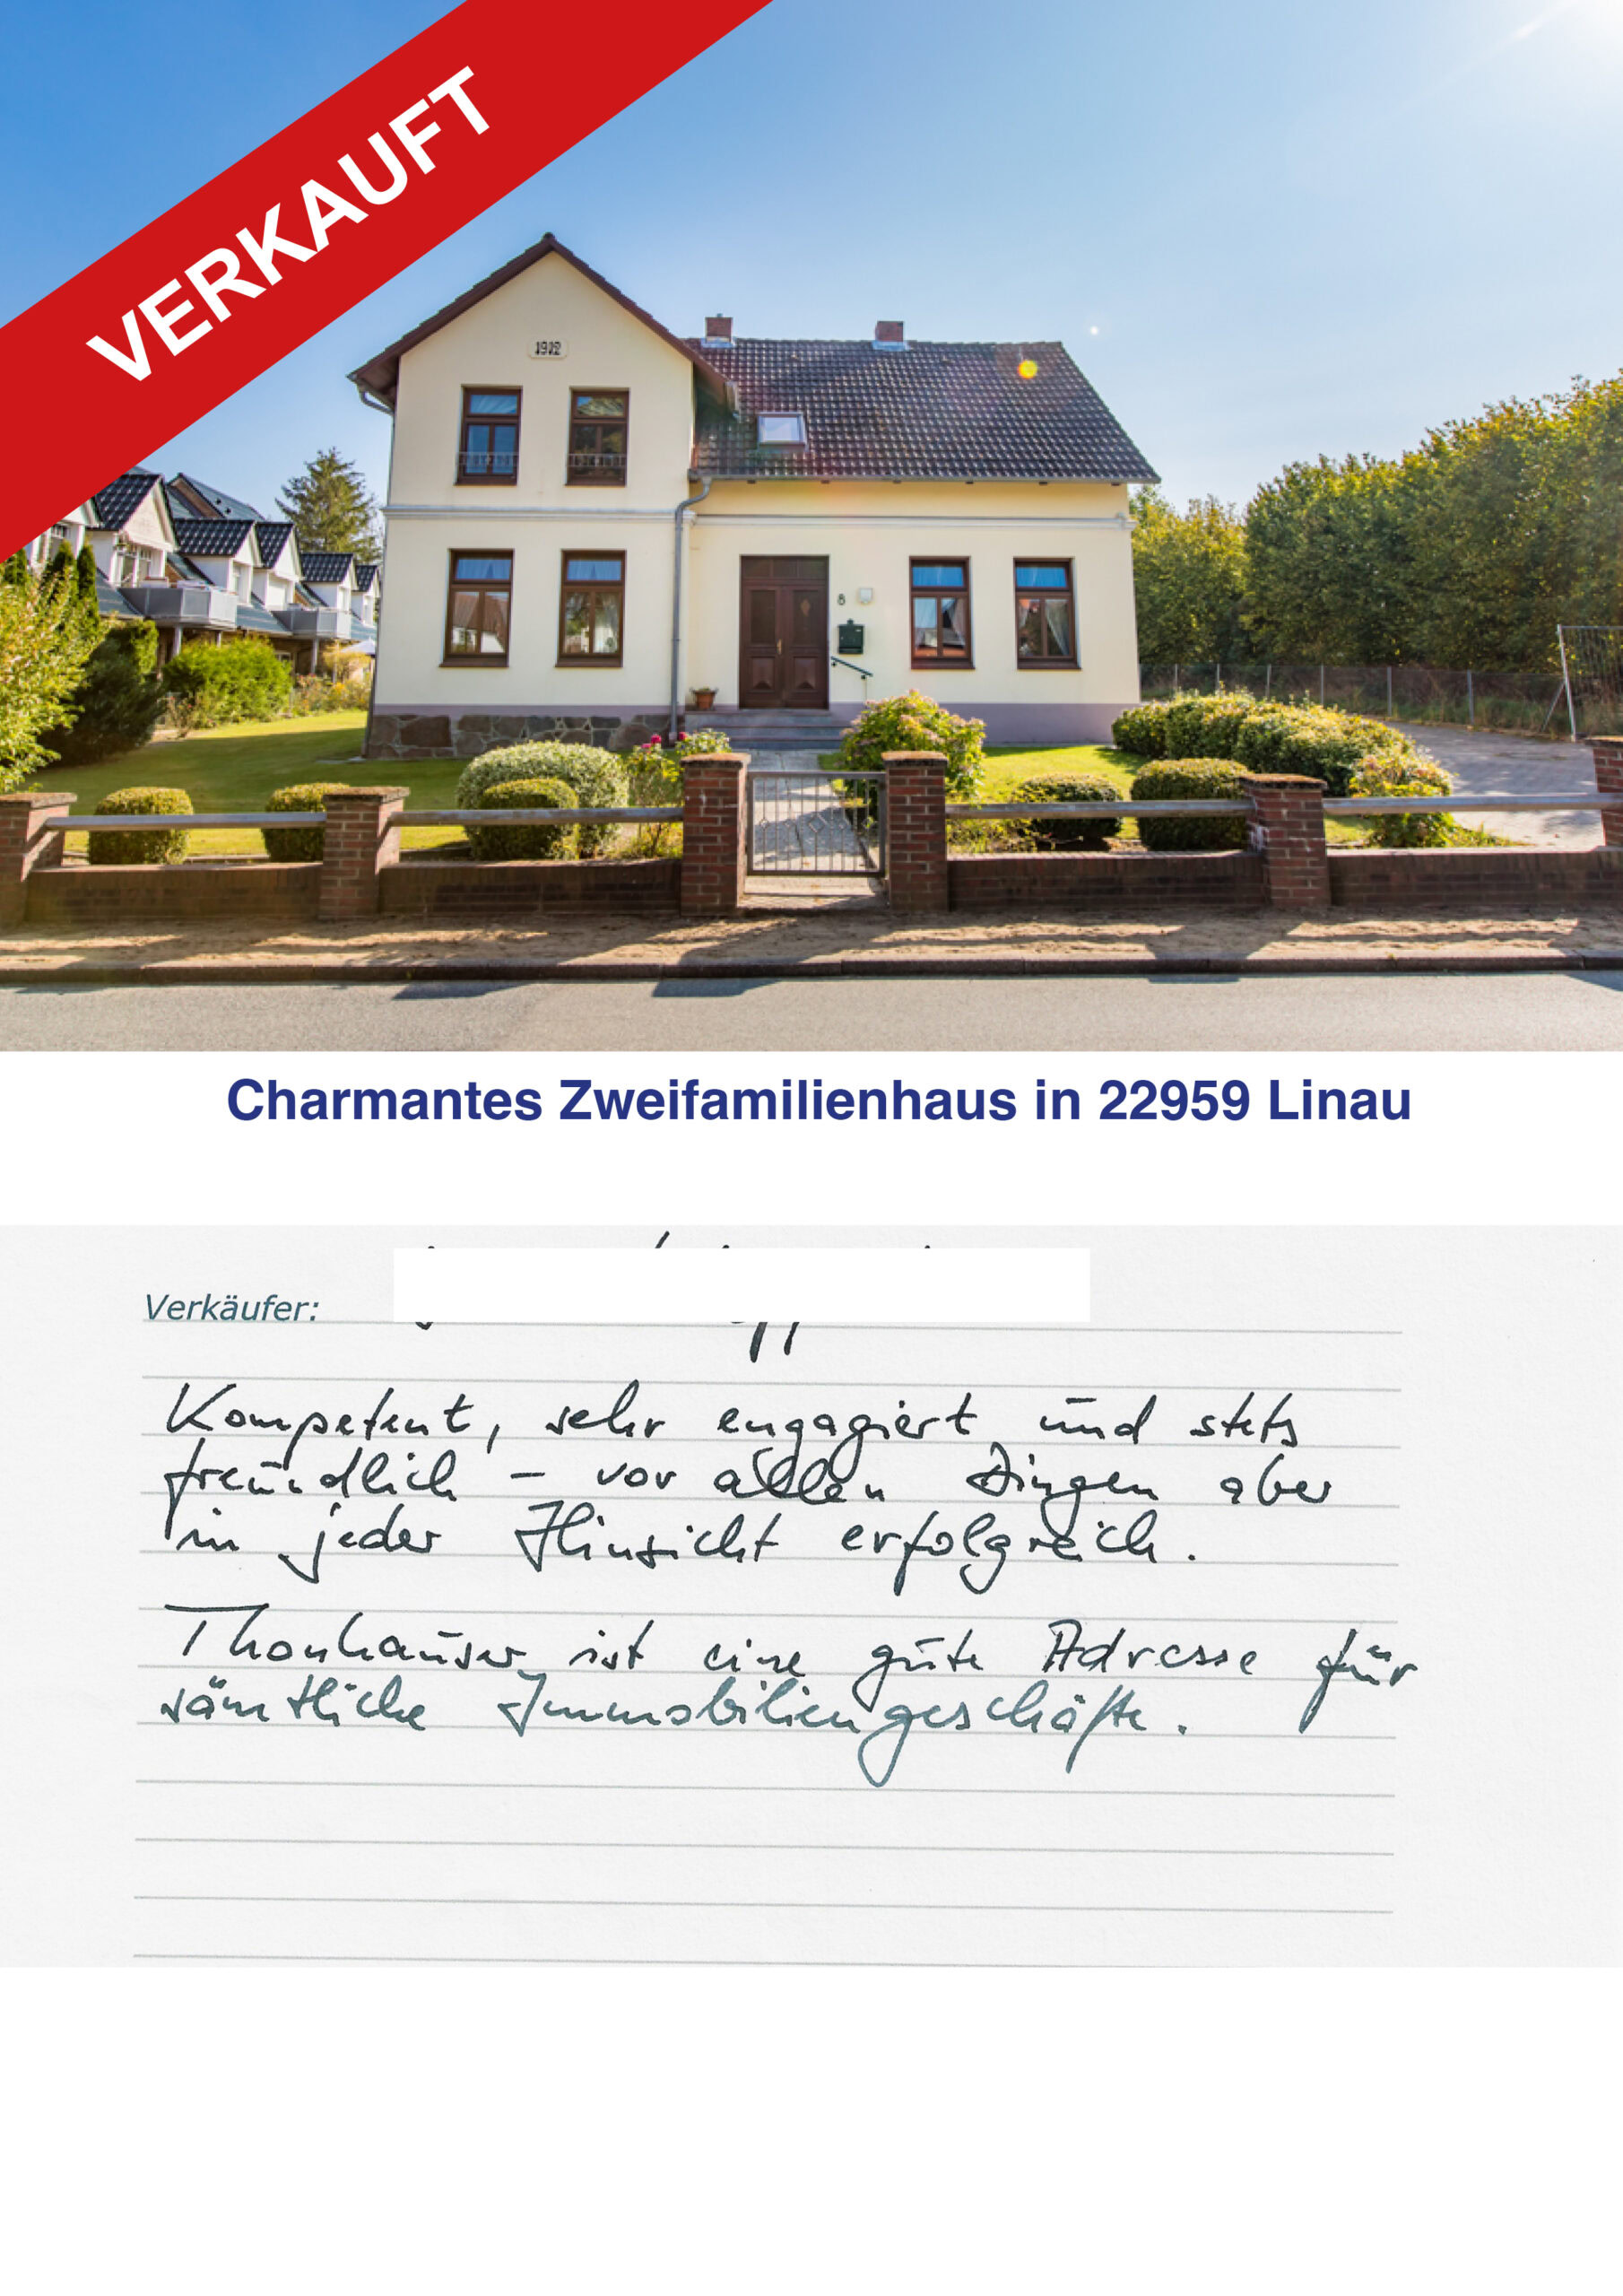 VERKAUFT
1912
8
Charmantes Zweifamilienhaus in 22959 Linau
Verkäufer:
Kompetent, sehr engagiert und stets
freundlich – vor allen Dingen aber
in jeder Hinsicht erfolgreich.
Thonhauser ist eine gute Adresse für
sämtliche Immobiliengeschäfte.